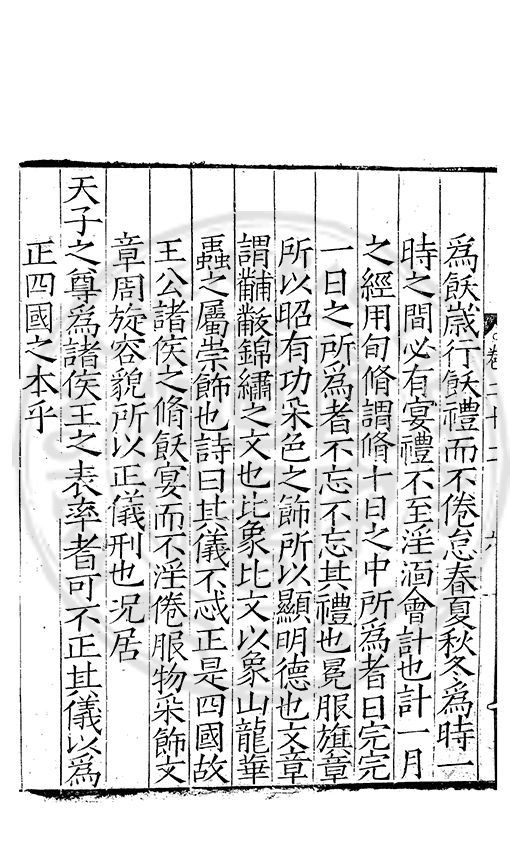 卷二十二 六
為飫歲行飫禮而不倦怠春夏秋冬為時一
時之間必有宴禮不至淫湎會計也計一月
之經用旬脩謂脩十日之中所為者日完完
一日之所為者不忘不忘其禮也冕服旗章
所以昭有功采色之飾所以顯明德也文章
謂黼黻錦繡之文也比象比文以象山龍華
蟲之屬崇飾也詩曰其儀不忒正是四國故
王公諸侯之脩飫宴而不淫倦服物采飾文
章周旋容貌所以正儀刑也况居
天子之尊為諸侯王之表率者可不正其儀以為
正四國之本乎